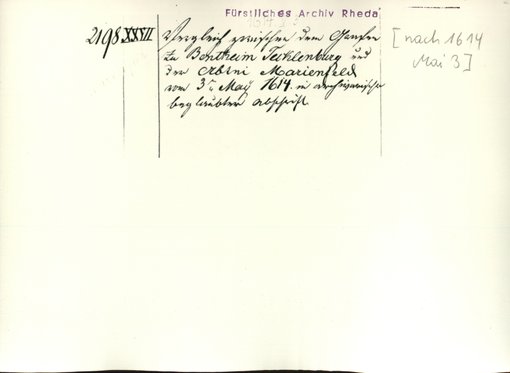 Fürstliches Archiv Rheda
2198 XXVII
Vergleich zwischen dem Grafen
zu Bentheim Tecklenburg und
der Abtei Marienfeld
vom 3ⁿ May 1614. in archivarischer
beglaubter Abschrift
[nach 1614
Mai 3]